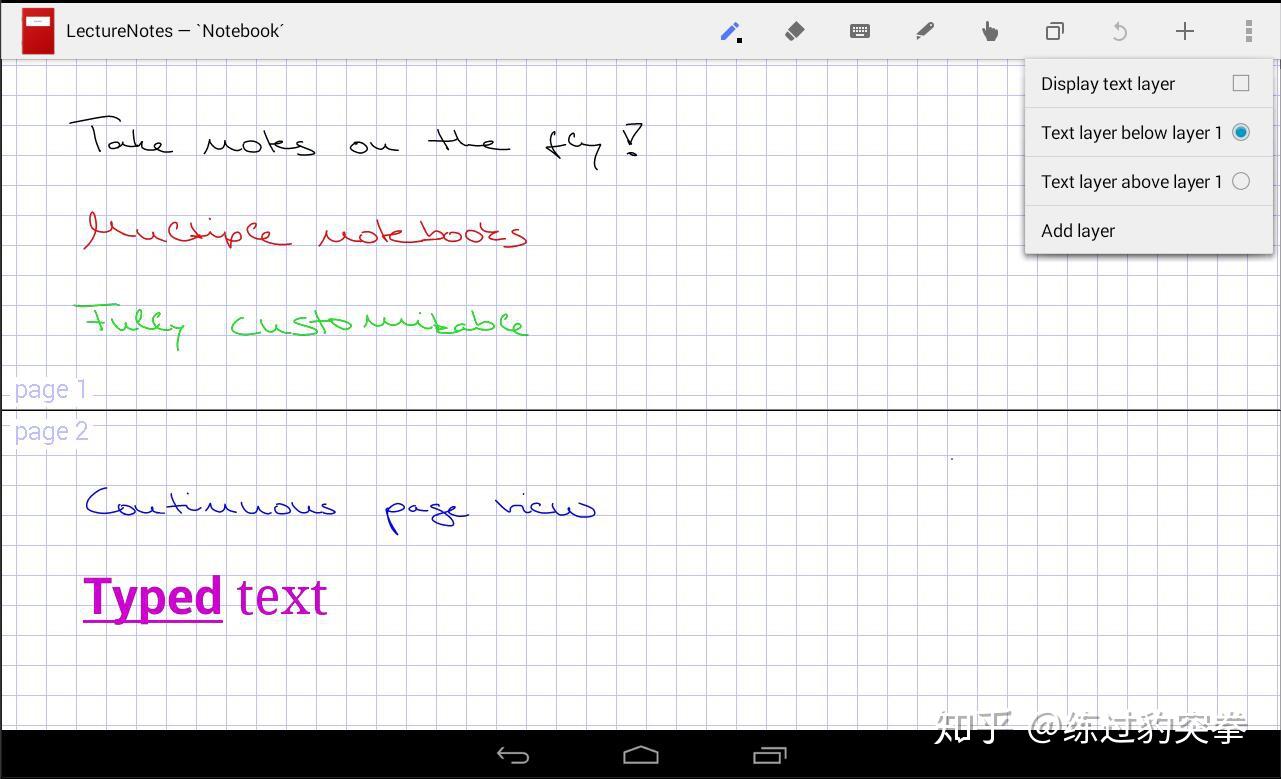 LectureNotes — `Notebook´
Display text layer
Text layer below layer 1
Text layer above layer 1
Add layer
Take notes on the fly!
Multiple notebooks
Fully customizable
page 1
page 2
Continuous page view
Typed text
知乎 @练过豹突拳